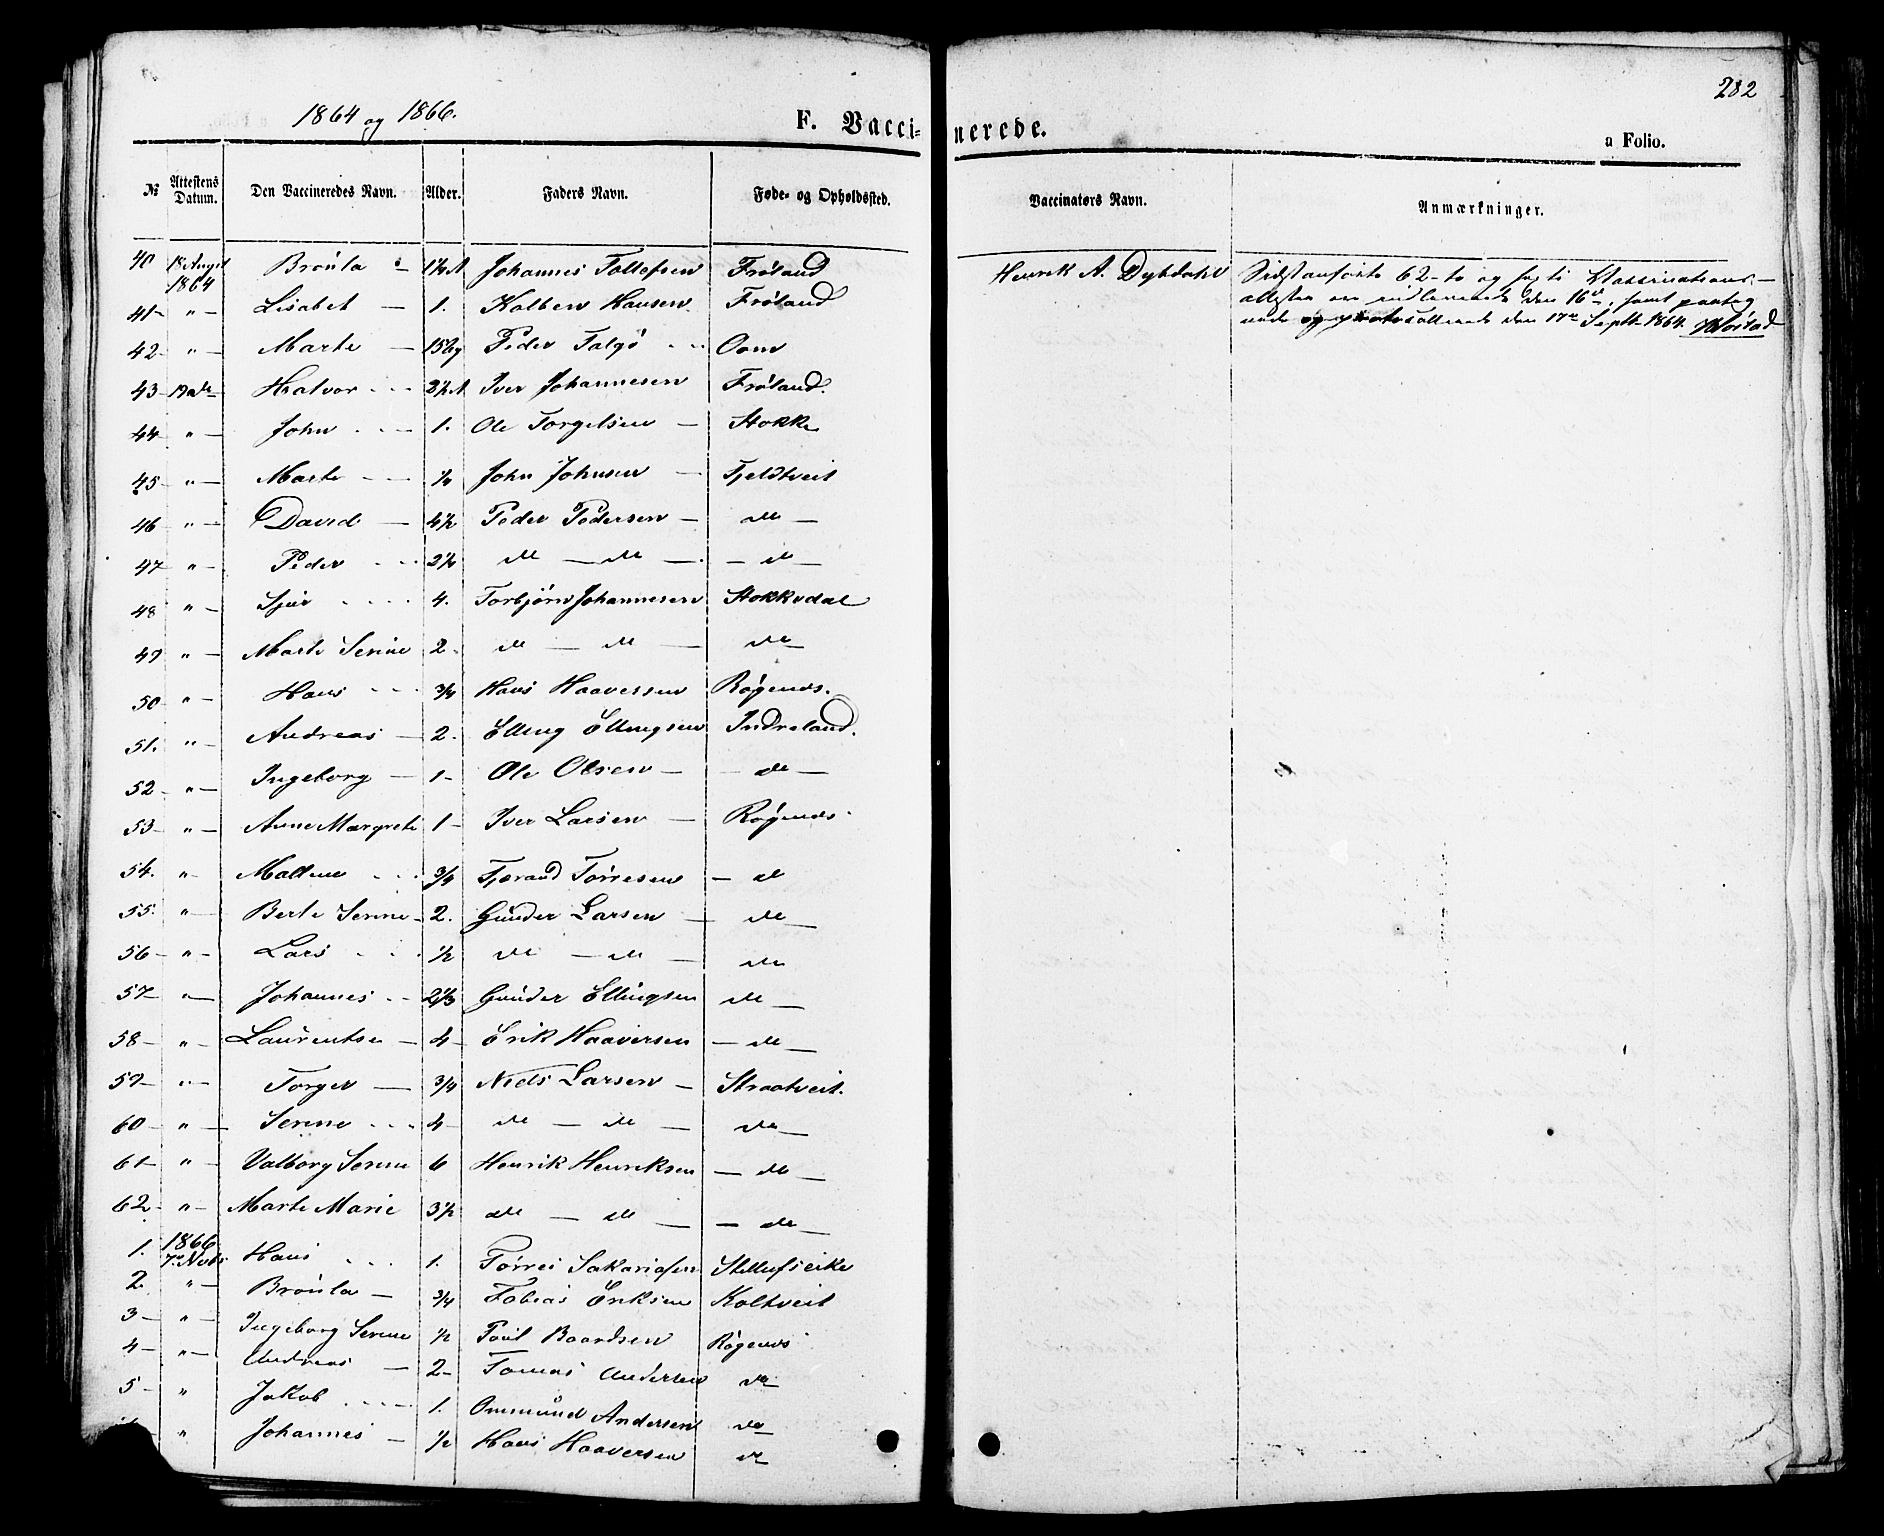 282
1864 og 1866.
F. Vaccinerede.
a Folio.
№ Attestens Datum. Den Vaccineredes Navn. Alder. Faders Navn. Føde- og Opholdssted. Vaccinators Navn. Anmærkninger.
40 18 August 1864 Bronla 1 Johannes Tollefsen Frøland Henrik A. Dybdahl
62 og
den 16de, samt
den 17de Septbr 1864.
41 " Lisabet 1. Kolben Hansen Frøland
42 " Marte Peder Falgö
43 19 do Halvor Iver Johannesen Frøland.
44 " John 1. Ole Torgelsen Stokke
45 " Marte John Johnsen Fjeldtveit
46 " David 4½ Peder Pedersen do
47 " Peder do do do
48 " Sjur 4. Torbjørn Johannesen Stokkedal
49 " Marte Serine 2 do do do
50 " Hans 3/4 Hans Haaversen Røgenes.
51. " Andreas 2. Elling Ellingsen Indreland.
52 " Ingeborg 1 Ole Olsen do
53 " Anne Margrete 1 Iver Larsen Røgenes
54. " Maltene 3/4 Tjerand Tørresen do
55. " Berte Serine 2. Gunder Larsen do
56 " Lars ½ do do do
57 " Johannes 2 1/3 Gunder Ellingsen do
58 " Laurentse 4 Erik Haaversen do
59 " Torger 3/4 Niels Larsen Straatveit.
60 " Serine 4 do do do
61 " Valborg Serine 6 Henrik Henriksen do
62 " Marte Marie 3½ do do do
1. 1866 7de Novbr Hans 1. Tørres Sakariasen
2. " Bronla 3/4 Tobias Eriksen Koltveit
3 " Ingeborg Serine ½ Poul Baardsen Røgenes
4 " Andreas 2 Tomas Andersen do
5 " Jakob 1. Ommund Andersen do
" Johannes ½ Hans Haaversen do